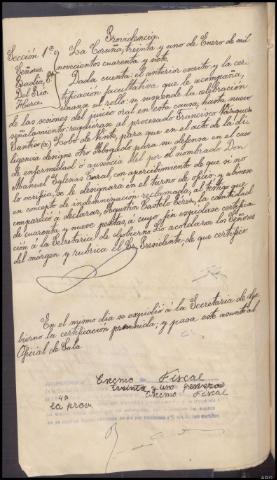 Providencia
Sección 1ª La Coruña, treinta y uno de Enero de mil
Señores novecientos cuarenta y siete.
Dada cuenta: el anterior escrito y la cer-
tificación facultativa que le acompaña,
unanse al rollo; se suspende la celebración
de las sesiones del juicio oral en esta causa, hasta nuevo
señalamiento; requierase al procesado Francisco
de Ponte, para que en el acto de la di-
ligencia designe
de enfermedad o ausencia del por el nombrado Don
Manuel Iglesias Corral, con apercibimiento de que si no
lo verifica, se le designará en el turno de oficio; y abonese
en concepto de indemnización reclamada, al testigo
comparecio a declarar, la cantidad
de cuarenta y nueve pesetas, a cuyo fin expidase certifica-
ción a la Secretaría de Gobierno. Lo acordaron los Señores
del margen y rubrica el Sr. Presidente, de que certifico
En el mismo día se expidió a la Secretaría de Go-
bierno la certificación prevenida; y pasa este asunto al
Oficial de Sala
Excmo Fiscal
treinta y uno
Excmo Fiscal
la prov